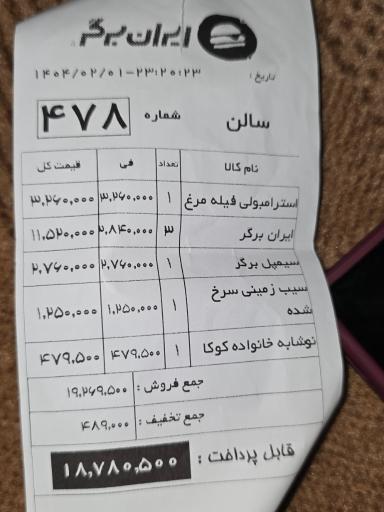 ایران برگر
تاریخ : ۱۴۰۴/۰۲/۰۱-۲۳:۲۰:۲۳
سالن شماره ۴۷۸
نام کالا تعداد فی قیمت کل
استرامبولی فیله مرغ ۱ ۳,۲۶۰,۰۰۰ ۳,۲۶۰,۰۰۰
ایران برگر ۳ ۳,۸۴۰,۰۰۰ ۱۱,۵۲۰,۰۰۰
سیمپل برگر ۱ ۲,۷۶۰,۰۰۰ ۲,۷۶۰,۰۰۰
سیب زمینی سرخ
شده ۱ ۱,۲۵۰,۰۰۰ ۱,۲۵۰,۰۰۰
نوشابه خانواده کوکا ۱ ۴۷۹,۵۰۰ ۴۷۹,۵۰۰
جمع فروش : ۱۹,۲۶۹,۵۰۰
جمع تخفیف : ۴۸۹,۰۰۰
قابل پرداخت : ۱۸,۷۸۰,۵۰۰